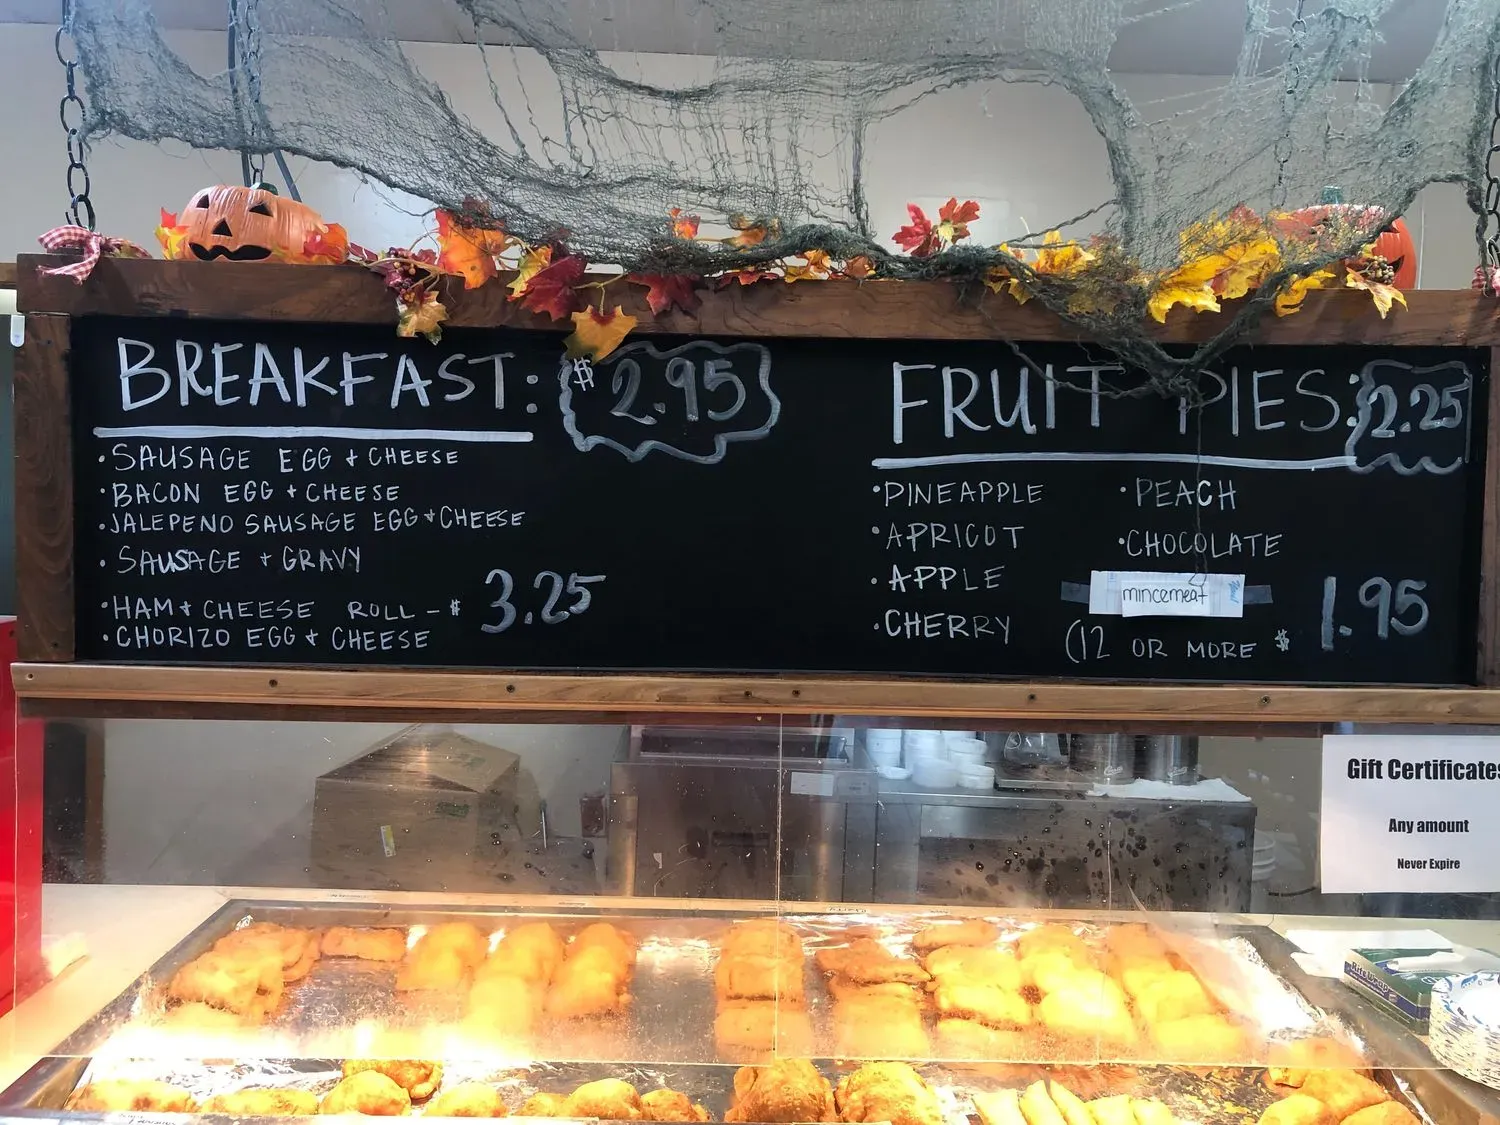 BREAKFAST: $2.95
•SAUSAGE EGG + CHEESE
•BACON EGG + CHEESE
•JALEPENO SAUSAGE EGG + CHEESE
•SAUSAGE + GRAVY
•HAM + CHEESE ROLL - $ 3.25
•CHORIZO EGG + CHEESE
FRUIT PIES: 2.25
•PINEAPPLE
•APRICOT
•APPLE
•CHERRY
•PEACH
•CHOCOLATE
mincemeat
(12 OR MORE $ 1.95
Gift Certificates
Any amount
Never Expire